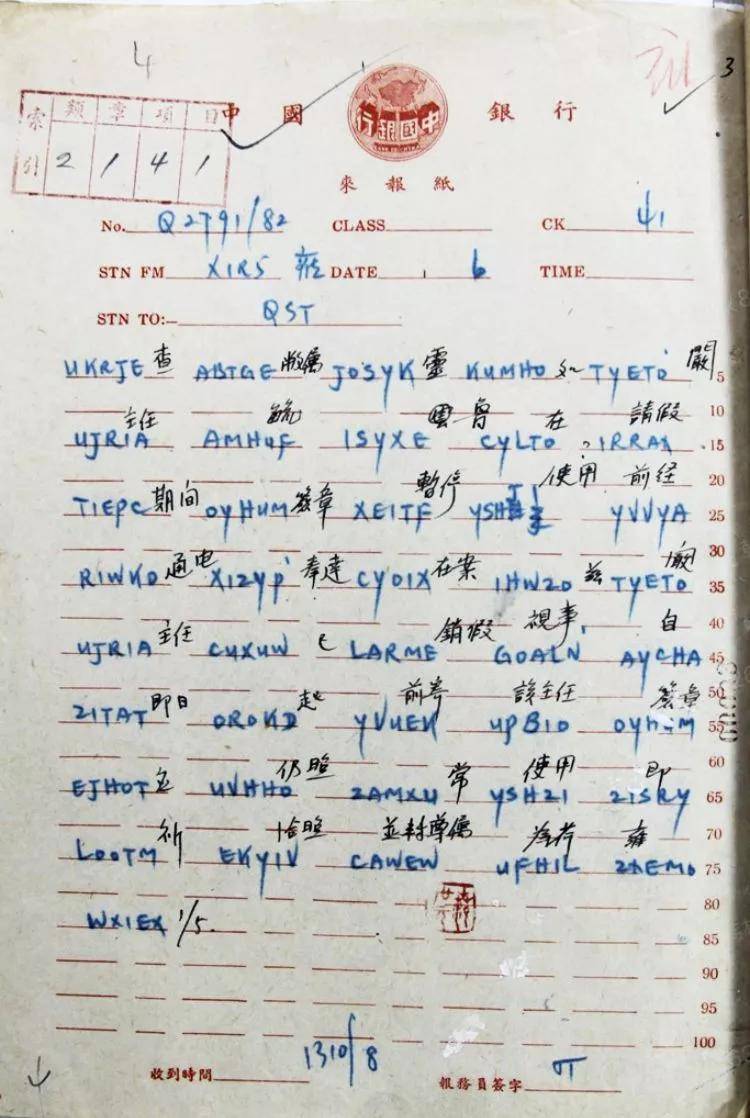 4 3
索引 類 章 項 目
2 1 4 1
中國 銀行
中國銀行
來報紙
No. Q2791/82 CLASS CK 41
STN FM X1RS DATE 6 TIME
STN TO:— QST
查 敝屬 靈 嚴
UKRJE ABTGE JOSYK KUMHO TYETO 5
10
主任 雲魯 在 請假
UJRIA AMHUF ISYXE CYLTO IRRAX 15
20
期间 簽章 暫停 使用 前经
TIEPC OYHUM XEITF YSH YVVYA 25
30
通电 奉達 在案 兹
RIWKO XIZYP CYOIX IHWZO TYETO 35
40
主任 銷假 視事, 自
UJRIA CUXUW LARME GOALN AYCHA 45
50
即日 起 前寄 該主任 簽章
ZITAT OROKD YVUEK UPBIO OYHUM 55
60
仍照 常 使用 即
EJHOT UVHHO ZAMXU YSHZI ZISRY 65
70
祈 洽照 並轉尊屬 為荷 雍
LOOTM EKYIV CAWEW UFHIL ZAEMO 75
80
WXIEX 1/5.
85
90
95
100
收到時間 1310/8 報務員簽字